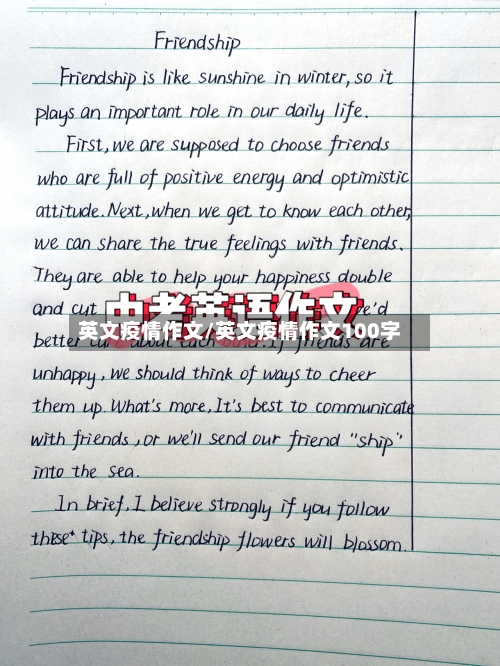 Friendship
Friendship is like sunshine in winter, so it
plays an important role in our daily life.
First, we are supposed to choose friends
who are full of positive energy and optimistic
attitude. Next, when we get to know each other,
we can share the true feelings with friends.
They are able to help your happiness double
and cut
中考英语作文
we'd
英文疫情作文/英文疫情作文100字
better about each other. If friends are
unhappy, we should think of ways to cheer
them up. What's more, It's best to communicate
with friends, or we'll send our friend "ship"
into the sea.
In brief, I believe strongly if you follow
these tips, the friendship flowers will blossom.